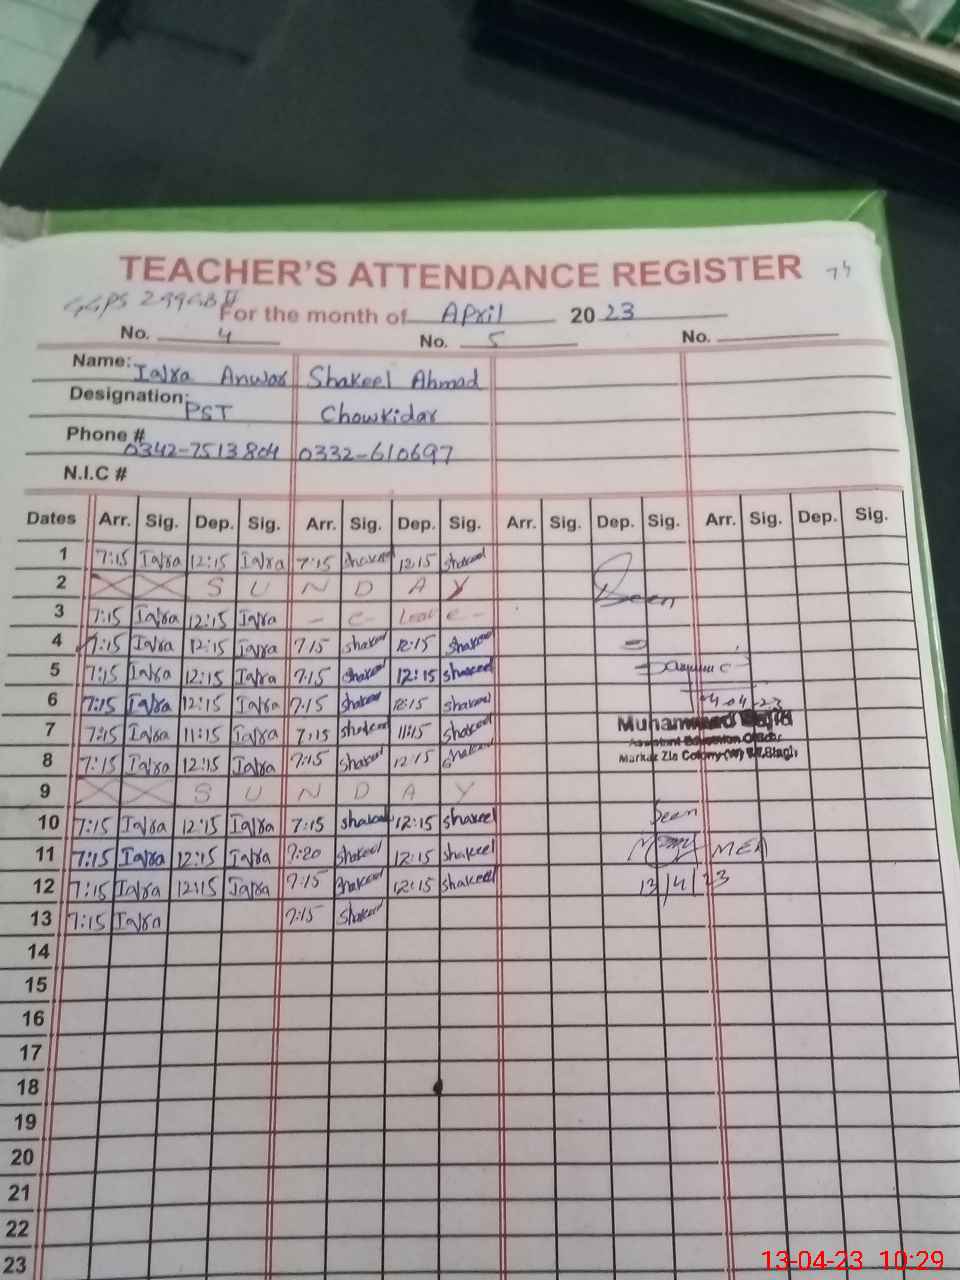 TEACHER'S ATTENDANCE REGISTER
GGPS 299GB II
For the month of April 2023
No. 4 No. 5 No.
Name: Iqra Anwar Shakeel Ahmad
Designation: PST Chowkidar
Phone # 0342-7513804 0332-610697
N.I.C #
Dates Arr. Sig. Dep. Sig. Arr. Sig. Dep. Sig. Arr. Sig. Dep. Sig. Arr. Sig. Dep. Sig.
1 7:15 Iqra 12:15 Iqra 7:15 shakeel 12:15 shakeel
2 S U N D A Y
Seen
3 7:15 Iqra 12:15 Iqra - C - Leave -
4 7:15 Iqra 12:15 Iqra 7:15 shakeel 12:15 shakeel
5 7:15 Iqra 12:15 Iqra 7:15 shakeel 12:15 shakeel
6 7:15 Iqra 12:15 Iqra 7:15 shakeel 12:15 shakeel
04-04-23
7 7:15 Iqra 11:15 Iqra 7:15 shakeel 11:15 shakeel
Muhammad Sajid
Assistant Education Officer
Markaz Zia Colony (W) T.T.Singh
8 7:15 Iqra 12:15 Iqra 7:15 shakeel 12:15 shakeel
9 S U N D A Y
10 7:15 Iqra 12:15 Iqra 7:15 shakeel 12:15 shakeel
Seen
11 7:15 Iqra 12:15 Iqra 7:20 shakeel 12:15 shakeel
MEA
12 7:15 Iqra 12:15 Iqra 7:15 shakeel 12:15 shakeel
13/4/23
13 7:15 Iqra 7:15 shakeel
14
15
16
17
18
19
20
21
22
23
13-04-23 10:29